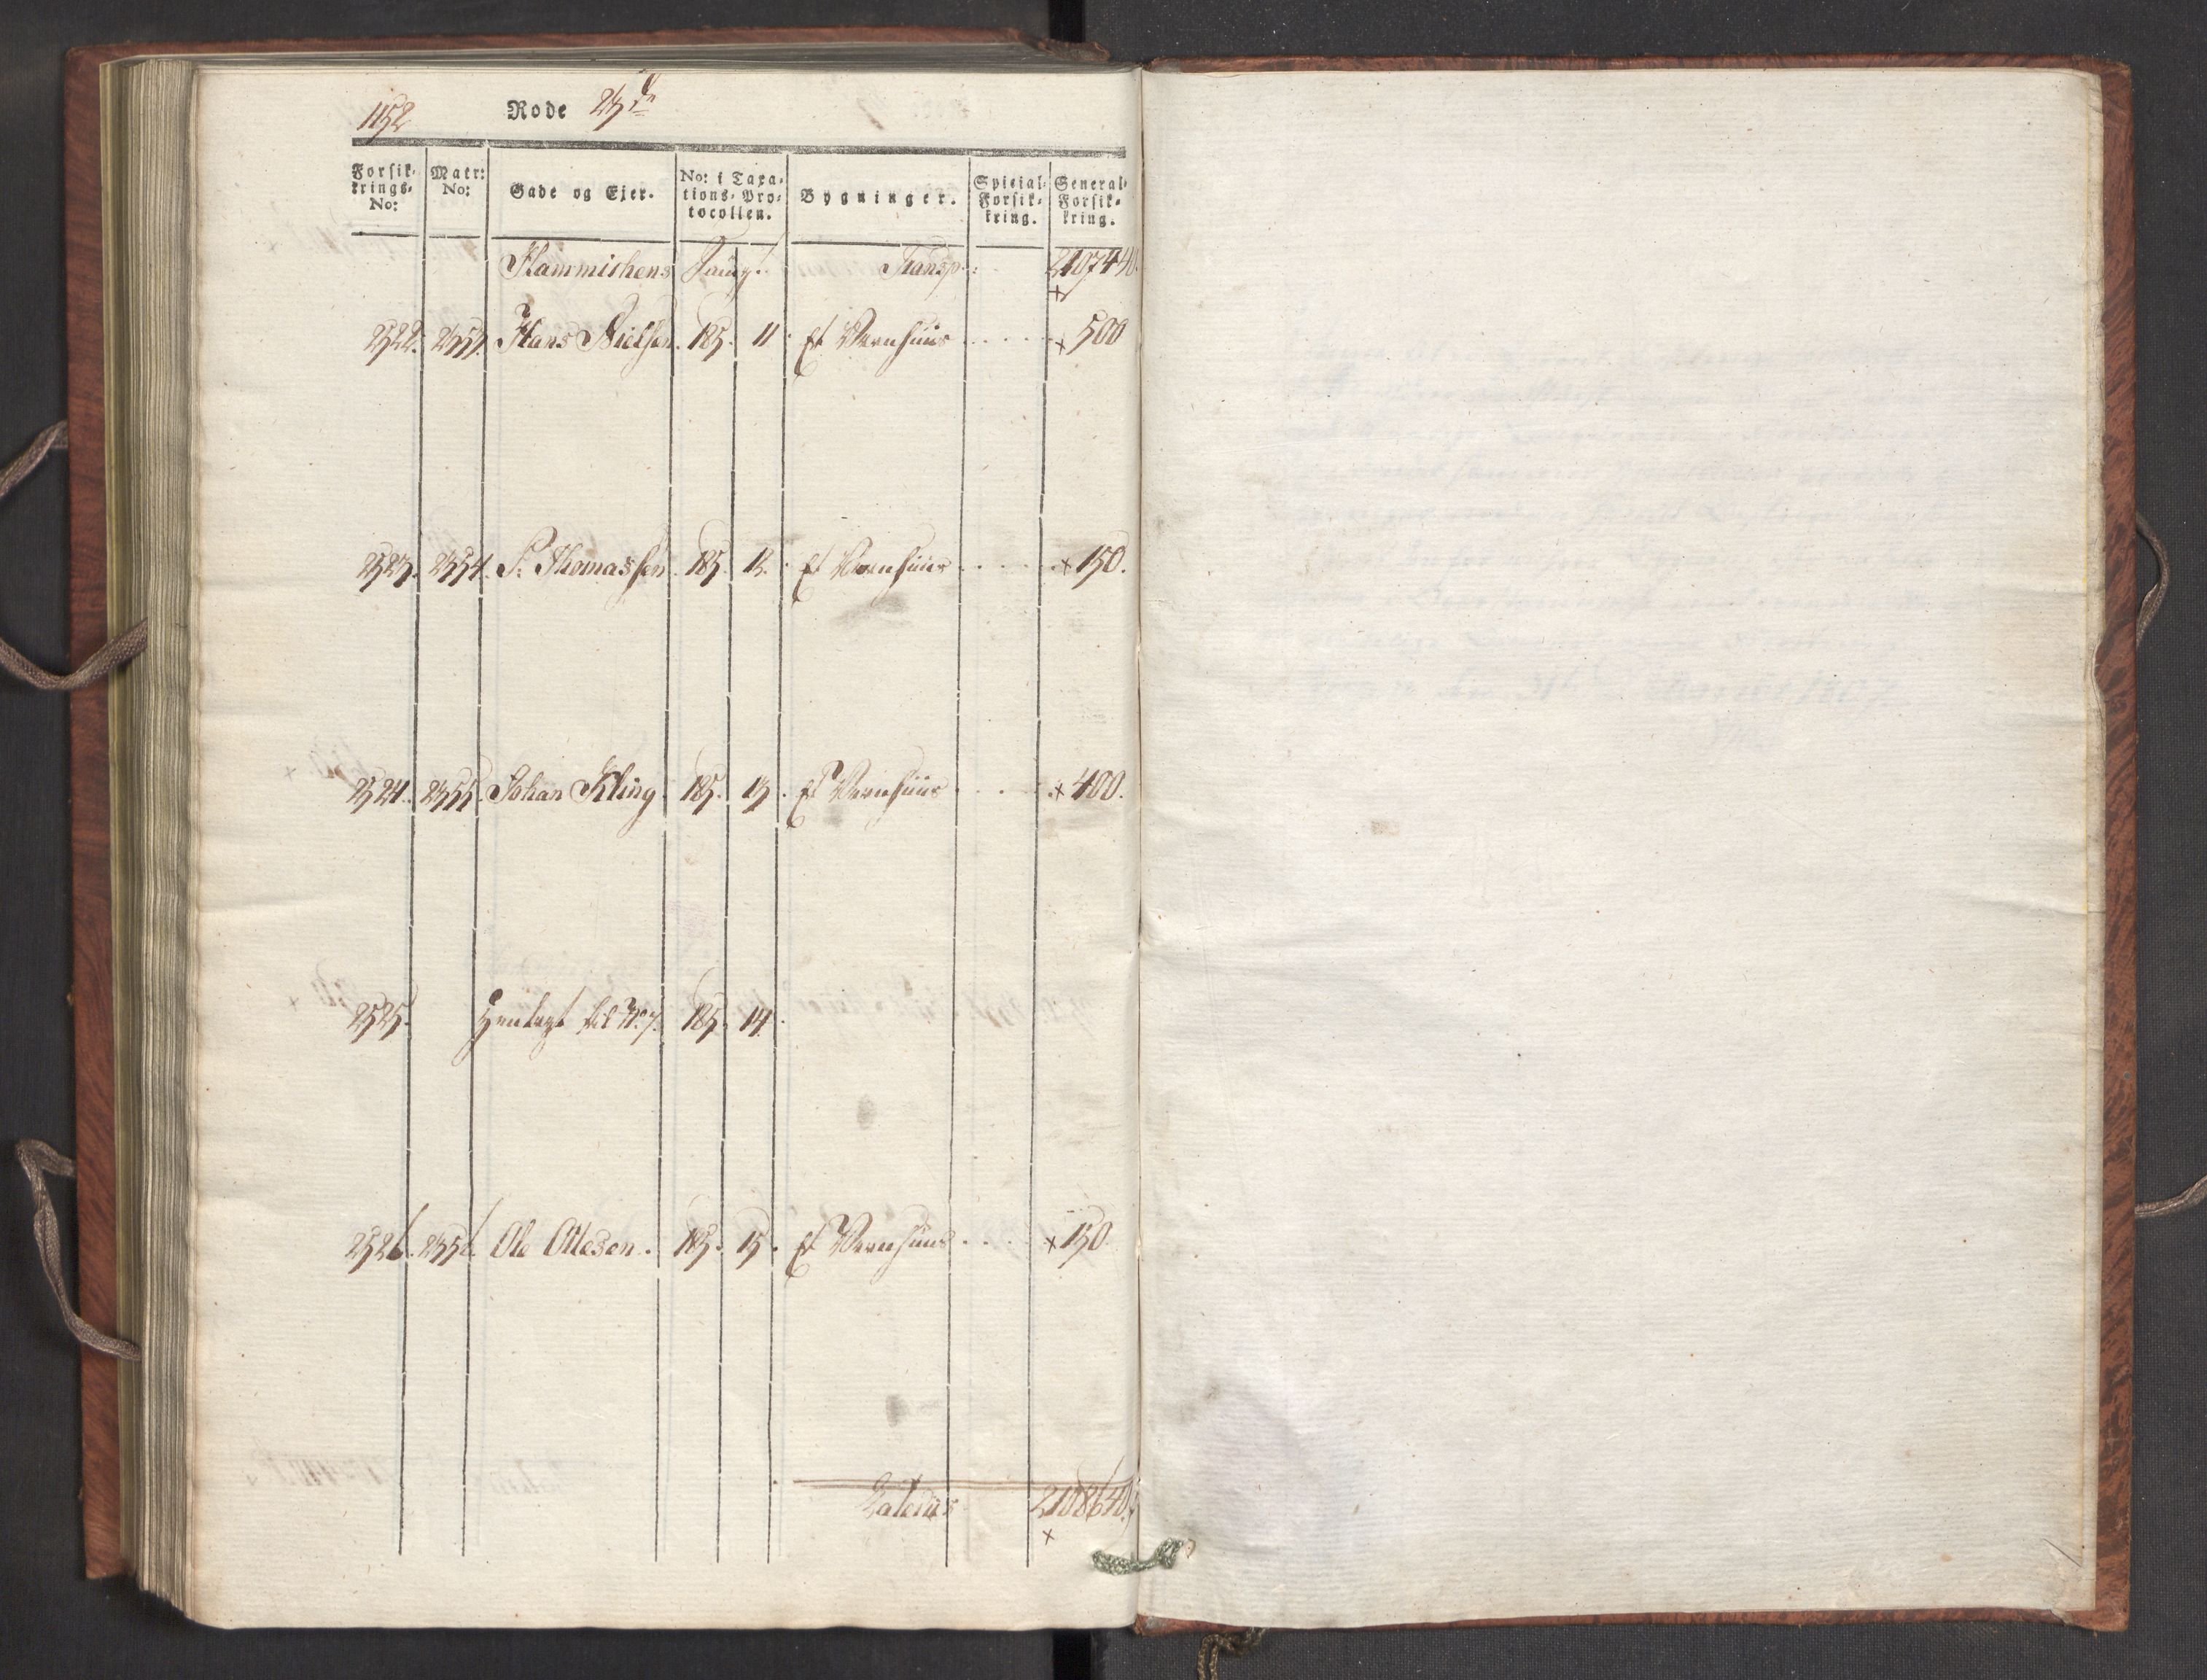 1152
Rode 23de
Forsik-
krings-
No:
Matr:
No:
Gade og Eier.
No: i Taxa-
tions-Pro-
tocollen.
Bygninger.
Spicial-
Forsik-
kring.
General-
Forsik-
kring.
Flammishens Saug. Transp: 2107440.
2522. 2353. Hans Nielsen. 185. 11. Et Vernhuus ..... × 500
2523. 2354. P. Thomassen. 185. 12. Et Vernhuus ..... × 150.
2524. 2355. Johan Kling. 185. 13. Et Vernhuus .... × 400.
2525. Henlagt til No 7. 185. 14.
2526. 2356. Ole Olesen. 185. 15. Et Vernhuus .... × 150.
Lateris 2108640.
×